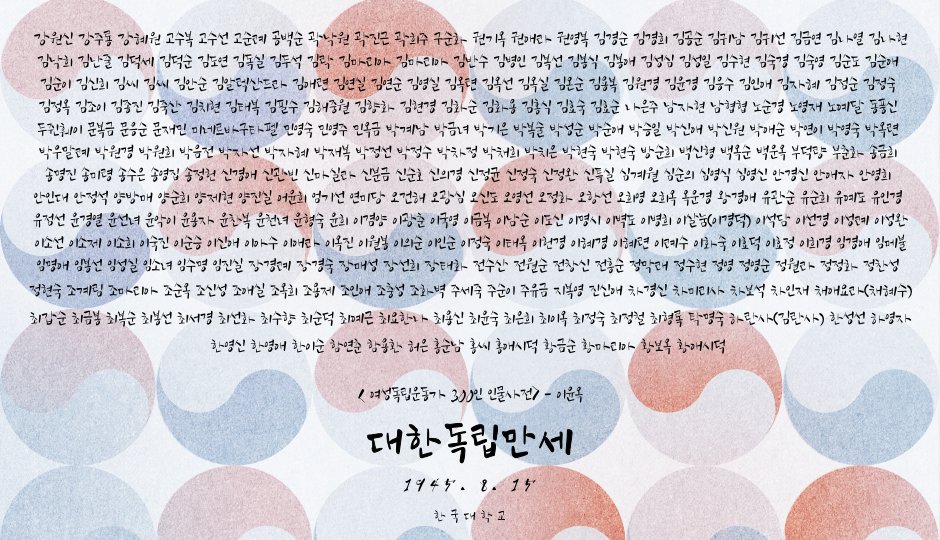 강원신 강주룡 강혜원 고수복 고수선 고순례 공백순 곽낙원 곽진근 곽희주 구순화 권기옥 권애라 권영복 김경순 김경희 김공순 김귀남 김귀선 김금연 김나열 김나현
김낙희 김난줄 김덕세 김덕순 김도연 김독실 김두석 김락 김마리아 김마리아 김반수 김병인 김봉선 김봉식 김봉애 김성심 김성일 김수현 김숙경 김숙영 김순도 김순애
김순이 김신희 김씨 김씨 김안순 김알렉산드라 김애련 김연실 김연순 김영실 김옥련 김옥선 김옥실 김온순 김용복 김원경 김윤경 김응수 김인애 김자혜 김점순 김정숙
김정옥 김조이 김종진 김죽산 김치현 김태복 김필수 김해중월 김향화 김현경 김화순 김화용 김홍식 김효숙 김효순 나은주 남자현 남협협 노순경 노영재 노예달 동풍신
두쥔훼이 문복금 문응순 문재민 미네르바구타펠 민영숙 민영주 민옥금 박계남 박금녀 박기은 박복순 박성순 박순애 박승일 박신애 박신원 박애순 박연이 박영숙 박옥련
박우말례 박원경 박원희 박음전 박자선 박자혜 박재복 박정선 박정수 박차정 박채희 박치은 박현숙 박현숙 방순희 백신영 백옥순 백운옥 부덕량 부춘화 송금희
송명진 송미령 송수은 송영집 송정헌 신경애 신관빈 신마실라 신분금 신순호 신의경 신정균 신정숙 신정완 신특실 심계월 심순의 심영식 심영신 안경신 안애자 안영희
안인대 안정석 양방매 양순희 양제현 양진실 어윤희 엄기선 연미당 오건해 오광심 오신도 오영선 오정화 오항선 오희영 오희옥 옥운경 왕경애 유관순 유순희 유예도 유인경
유점선 윤경열 윤선녀 윤악이 윤용자 윤찬복 윤천녀 윤형숙 윤희 이겸양 이광춘 이국영 이금복 이남순 이도신 이명시 이벽도 이병희 이살눔(이경덕) 이석담 이선경 이성례 이성완
이소선 이소제 이소희 이숙진 이순승 이신애 이아수 이애라 이옥진 이월봉 이의순 이인순 이정숙 이태옥 이헌경 이혜경 이혜련 이혜수 이화숙 이효덕 이효정 이희경 임경애 임메불
임명애 임봉선 임성실 임소녀 임수명 임진실 장경례 장경숙 장매성 장선희 장태화 전수산 전월순 전창신 전흥순 정막래 정수현 정영 정영순 정월라 정정화 정찬성
정현숙 조계림 조마리아 조순옥 조신성 조애실 조옥희 조용제 조인애 조충성 조화벽 주세죽 주순이 주유금 지복영 진신애 차경신 차미리사 차보석 차인재 채애요라(채혜수)
최갑순 최금봉 최복순 최봉선 최서경 최선화 최수향 최순덕 최예근 최요한나 최용신 최윤숙 최은희 최이옥 최정숙 최정철 최형록 탁명숙 하란사(김란사) 한성선 하영자
한영신 한영애 한이순 함연춘 함용환 허은 홍순남 홍씨 홍애시덕 황금순 황마리아 황보옥 황애시덕
<여성독립운동가 300인 인물사전> - 이윤옥
대한독립만세
1945. 8. 15
한국대학교